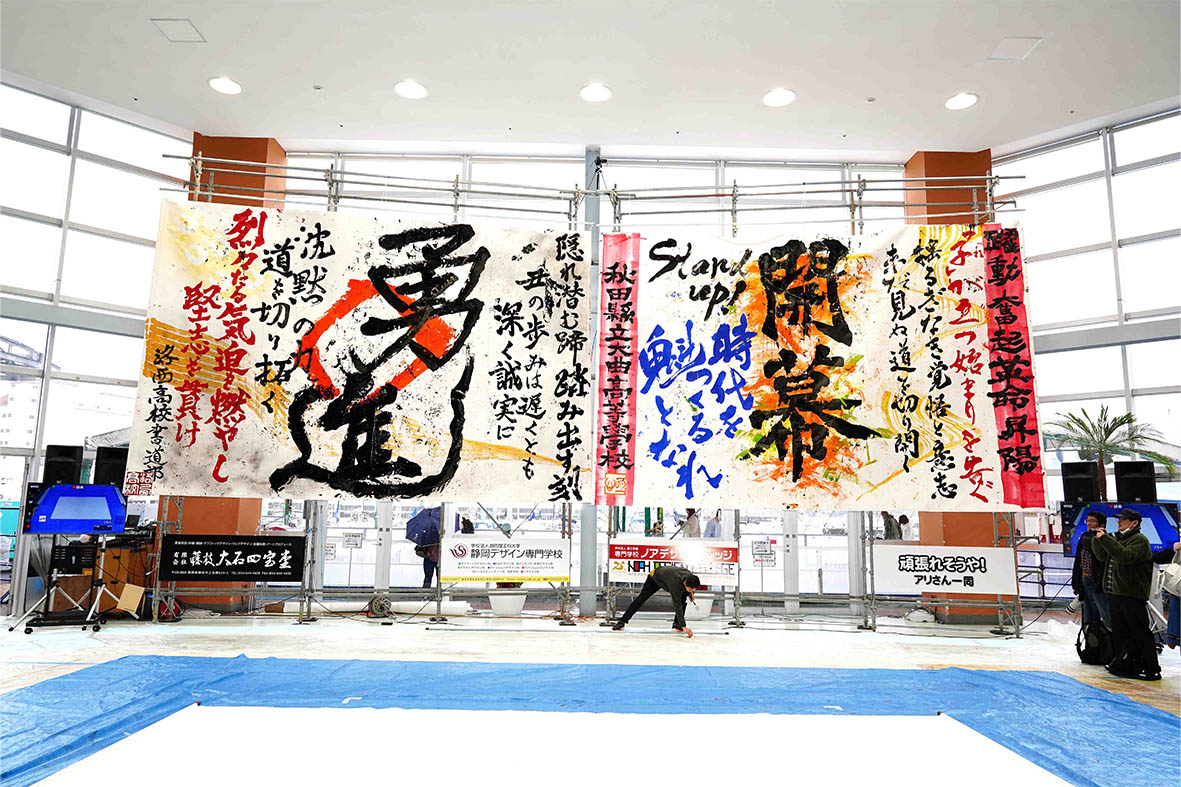 躍動 奮起 英命 昇陽
揺るぎなき覚悟と意志
未だ見ぬ道を切り開く
開幕
Stand up!
時代を
つくる
魁となれ
秋田縣立大曲高等學校
隠れ潜む蹄 踏み出す刻
丑の歩みは遅くとも
深く誠実に
勇進
沈黙の力
道を切り拓く
烈々たる気迫を燃やし
堅志を貫け
洛西高校書道部
有限会社 藤枝 大石四宝堂
学校法人静岡理工科大学
静岡デザイン専門学校
専門学校 ノアデザインカレッジ
頑張れそうや!
アリさん一同